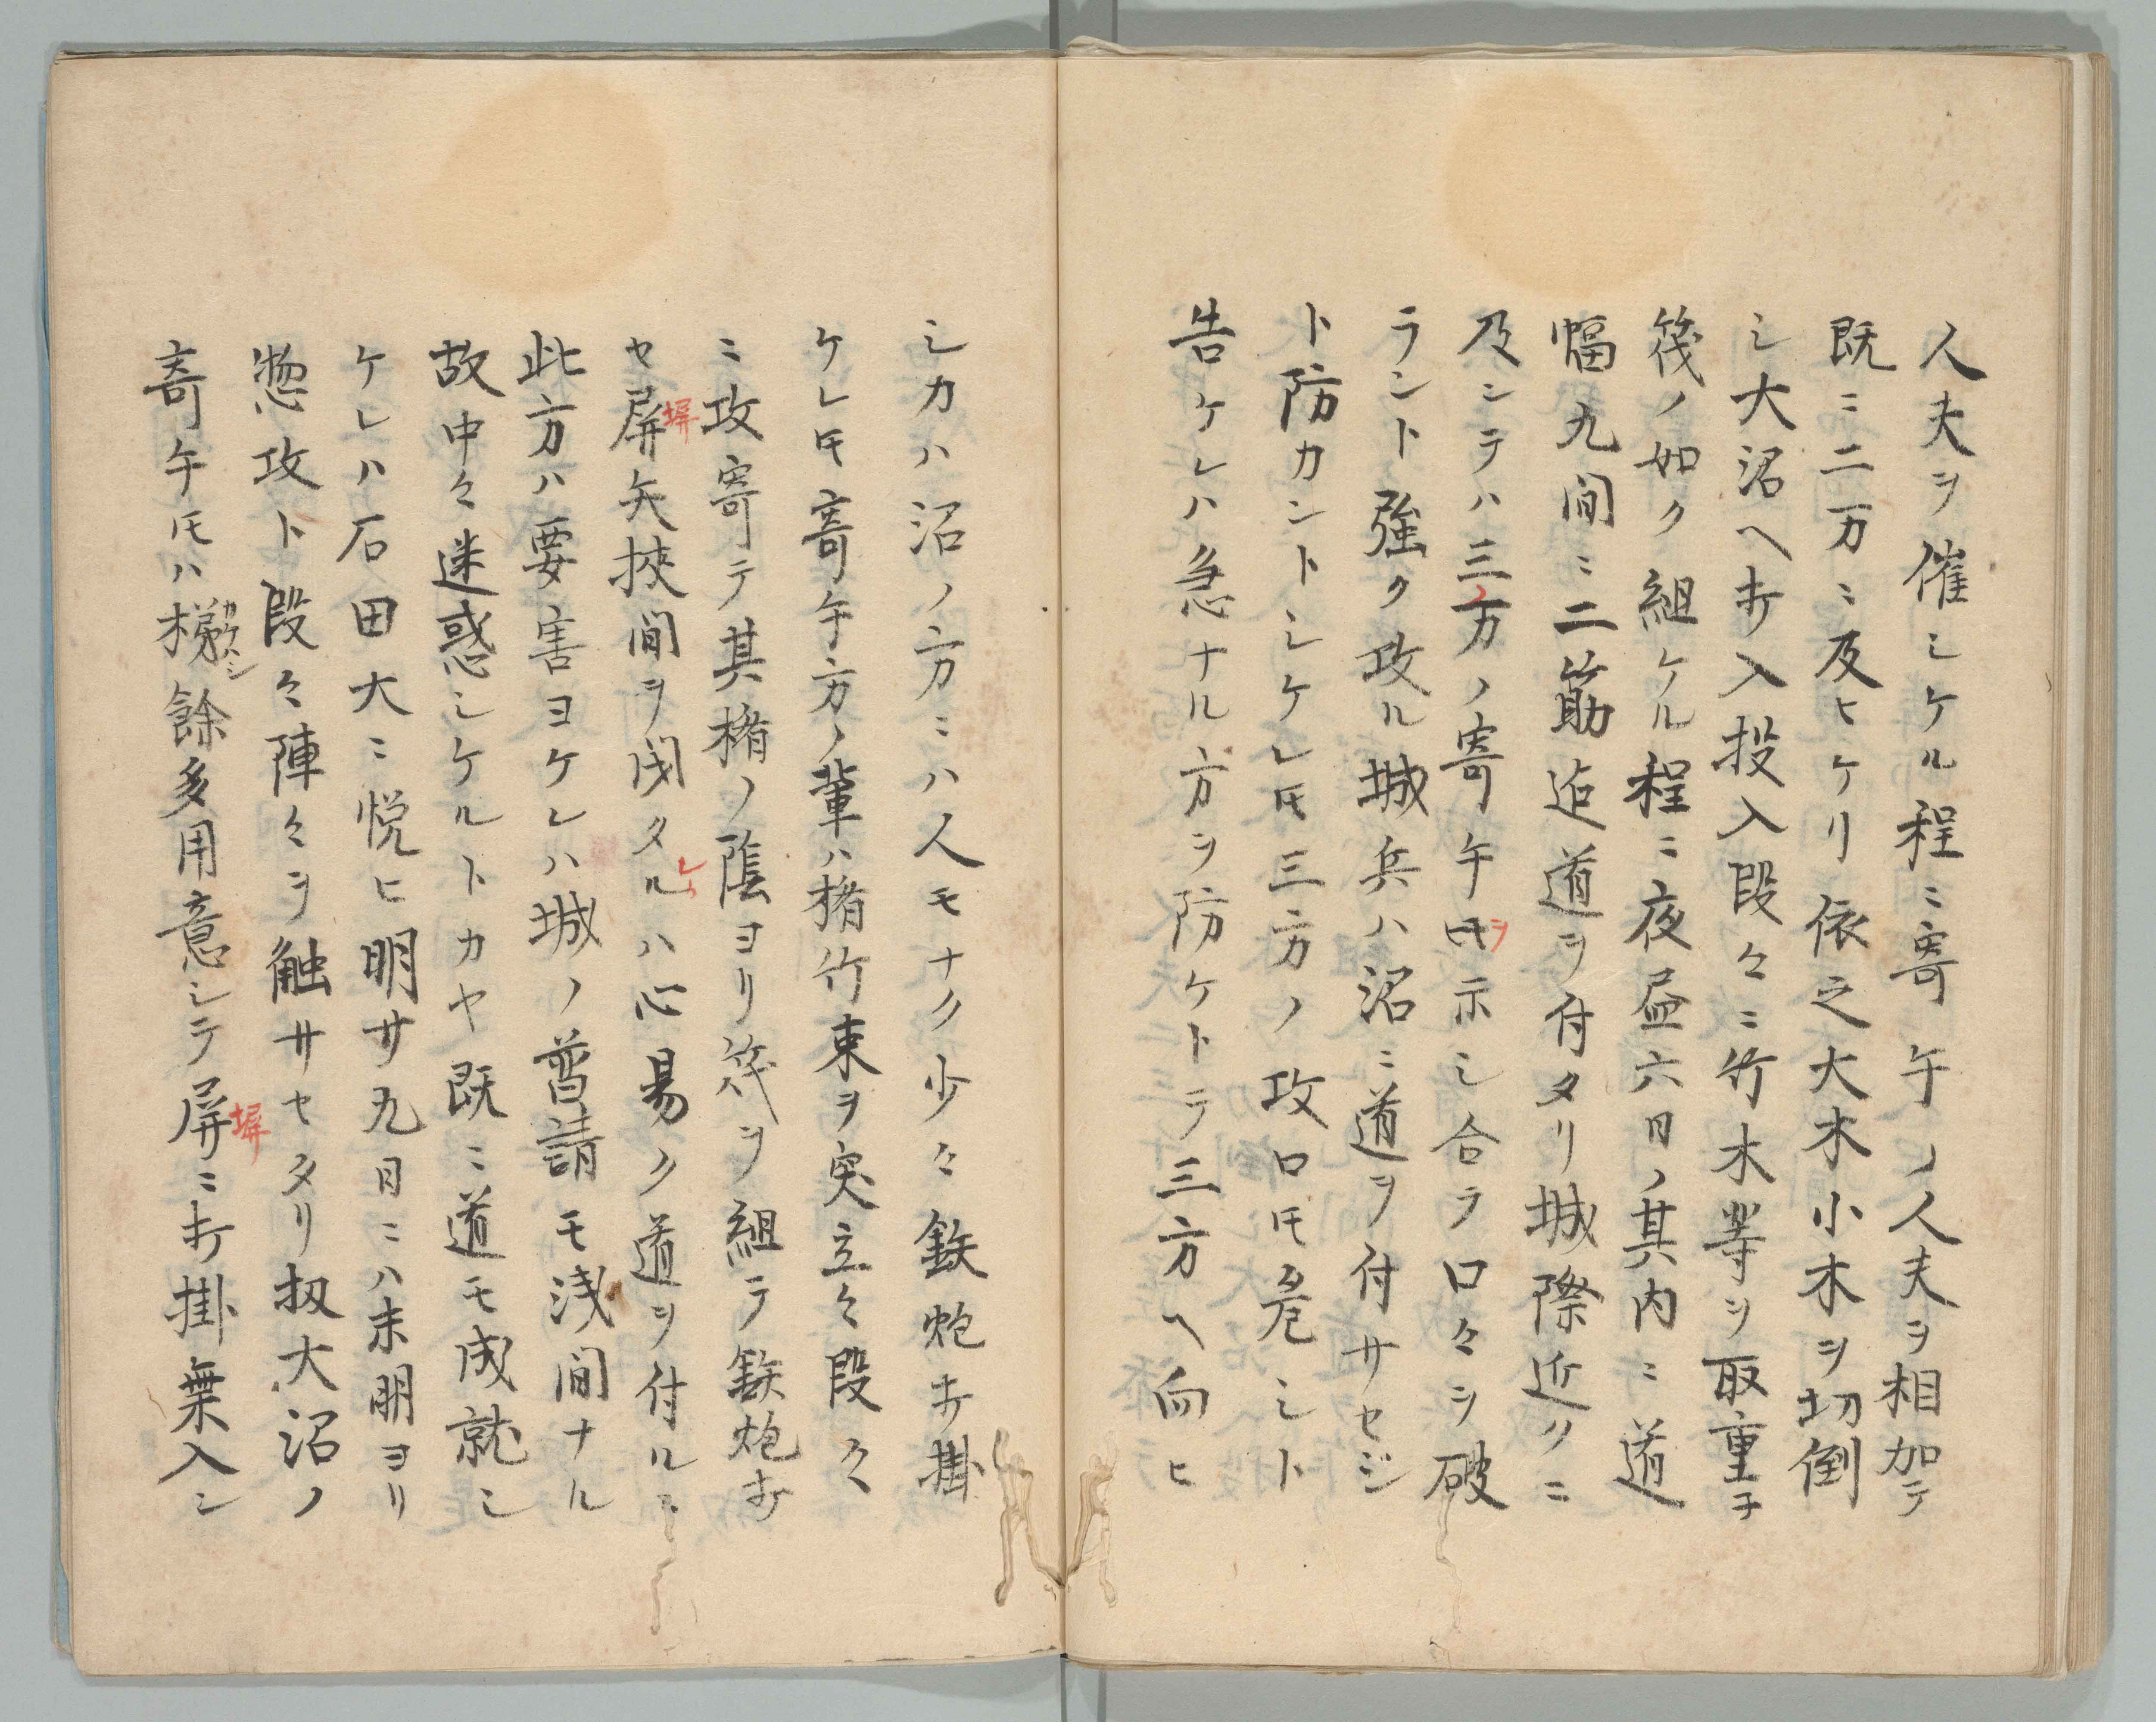 人夫ヲ催シケル程ニ寄手ノ人夫ヲ相加テ
既ニ二万ニ及ヒケリ依之大木小木ヲ切倒
シ大沼ヘ打入投入段々ニ竹木等ヲ取重子
筏ノ如ク組ケル程ニ夜昼六日ノ其内ニ道
幅九間ニ二筋迠道ヲ付タリ城際近クニ
及シテハ三万ノ寄手ヲ示シ合ラ口々ヲ破
ラント強ク攻ル城兵ハ沼ニ道ヲ付サセジ
ト防カントシケレ𪜈三方ノ攻口𪜈危シト
告ケレハ急ナル方ヲ防ケトテ三方ヘ向ヒ
シカハ沼ノ方ニハ人モナク少々鉄炮打掛
ケレ𪜈寄手方ノ輩ハ楯竹束ヲ突立々段々
ニ攻寄テ其楯ノ蔭ヨリ筏ヲ組テ鉄炮打
セ屏塀矢挾間ヲ閉タルレハ心易ク道ヲ付ルニ
此方ハ要害ヨケレハ城ノ普請モ浅間ナル
故中々迷惑シケルトカヤ既ニ道モ成就シ
ケレハ石田大ニ悦ヒ明サ九日ニハ未明ヨリ
惣攻ト段々陣々ヲ触サセタリ扨大沼ノ
寄手𪜈ハ梯カケハシ餘多用意シテ屏塀ニ打掛乗入シ